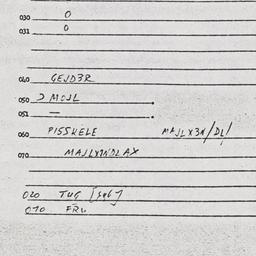 030 0
031 0
040 GEJD3R
050 Ɔ MOJL
051 —
060 PISSKELE MAJLX3N/DL/
070 MAJLX3NDLAX
020 TUG
070 FRL